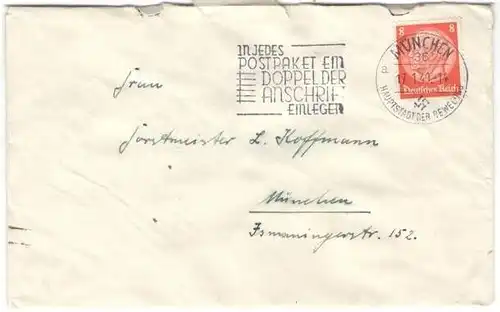 IN JEDES
POSTPAKET EIN
DOPPEL DER
ANSCHRIFT
EINLEGEN
8 8
MÜNCHEN
a
HAUPTSTADT DER BEWEGUNG
Deutsches Reich
Frau
Forstmeister L. Hoffmann
München
Ismaningerstr. 152.